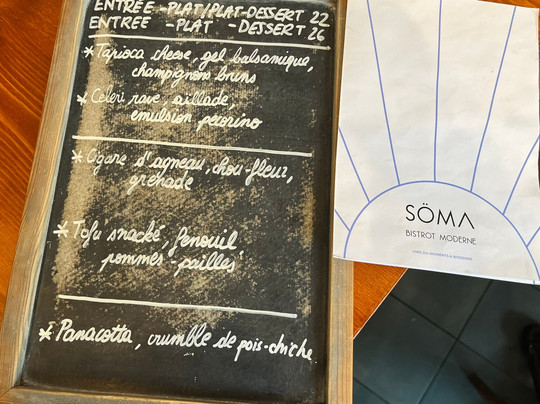 ENTREE - PLAT/PLAT-DESSERT 22
ENTREE - PLAT - DESSERT 26
* Tapioca cheese, gel balsamique,
champignons bruns
* Céleri rave, aillade,
emulsion pecorino
* Cigare d'agneau, chou-fleur,
grenade
* Tofu snacké, fenouil
pommes pailles
* Panacotta, crumble de pois-chiche
SÖMA
BISTROT MODERNE